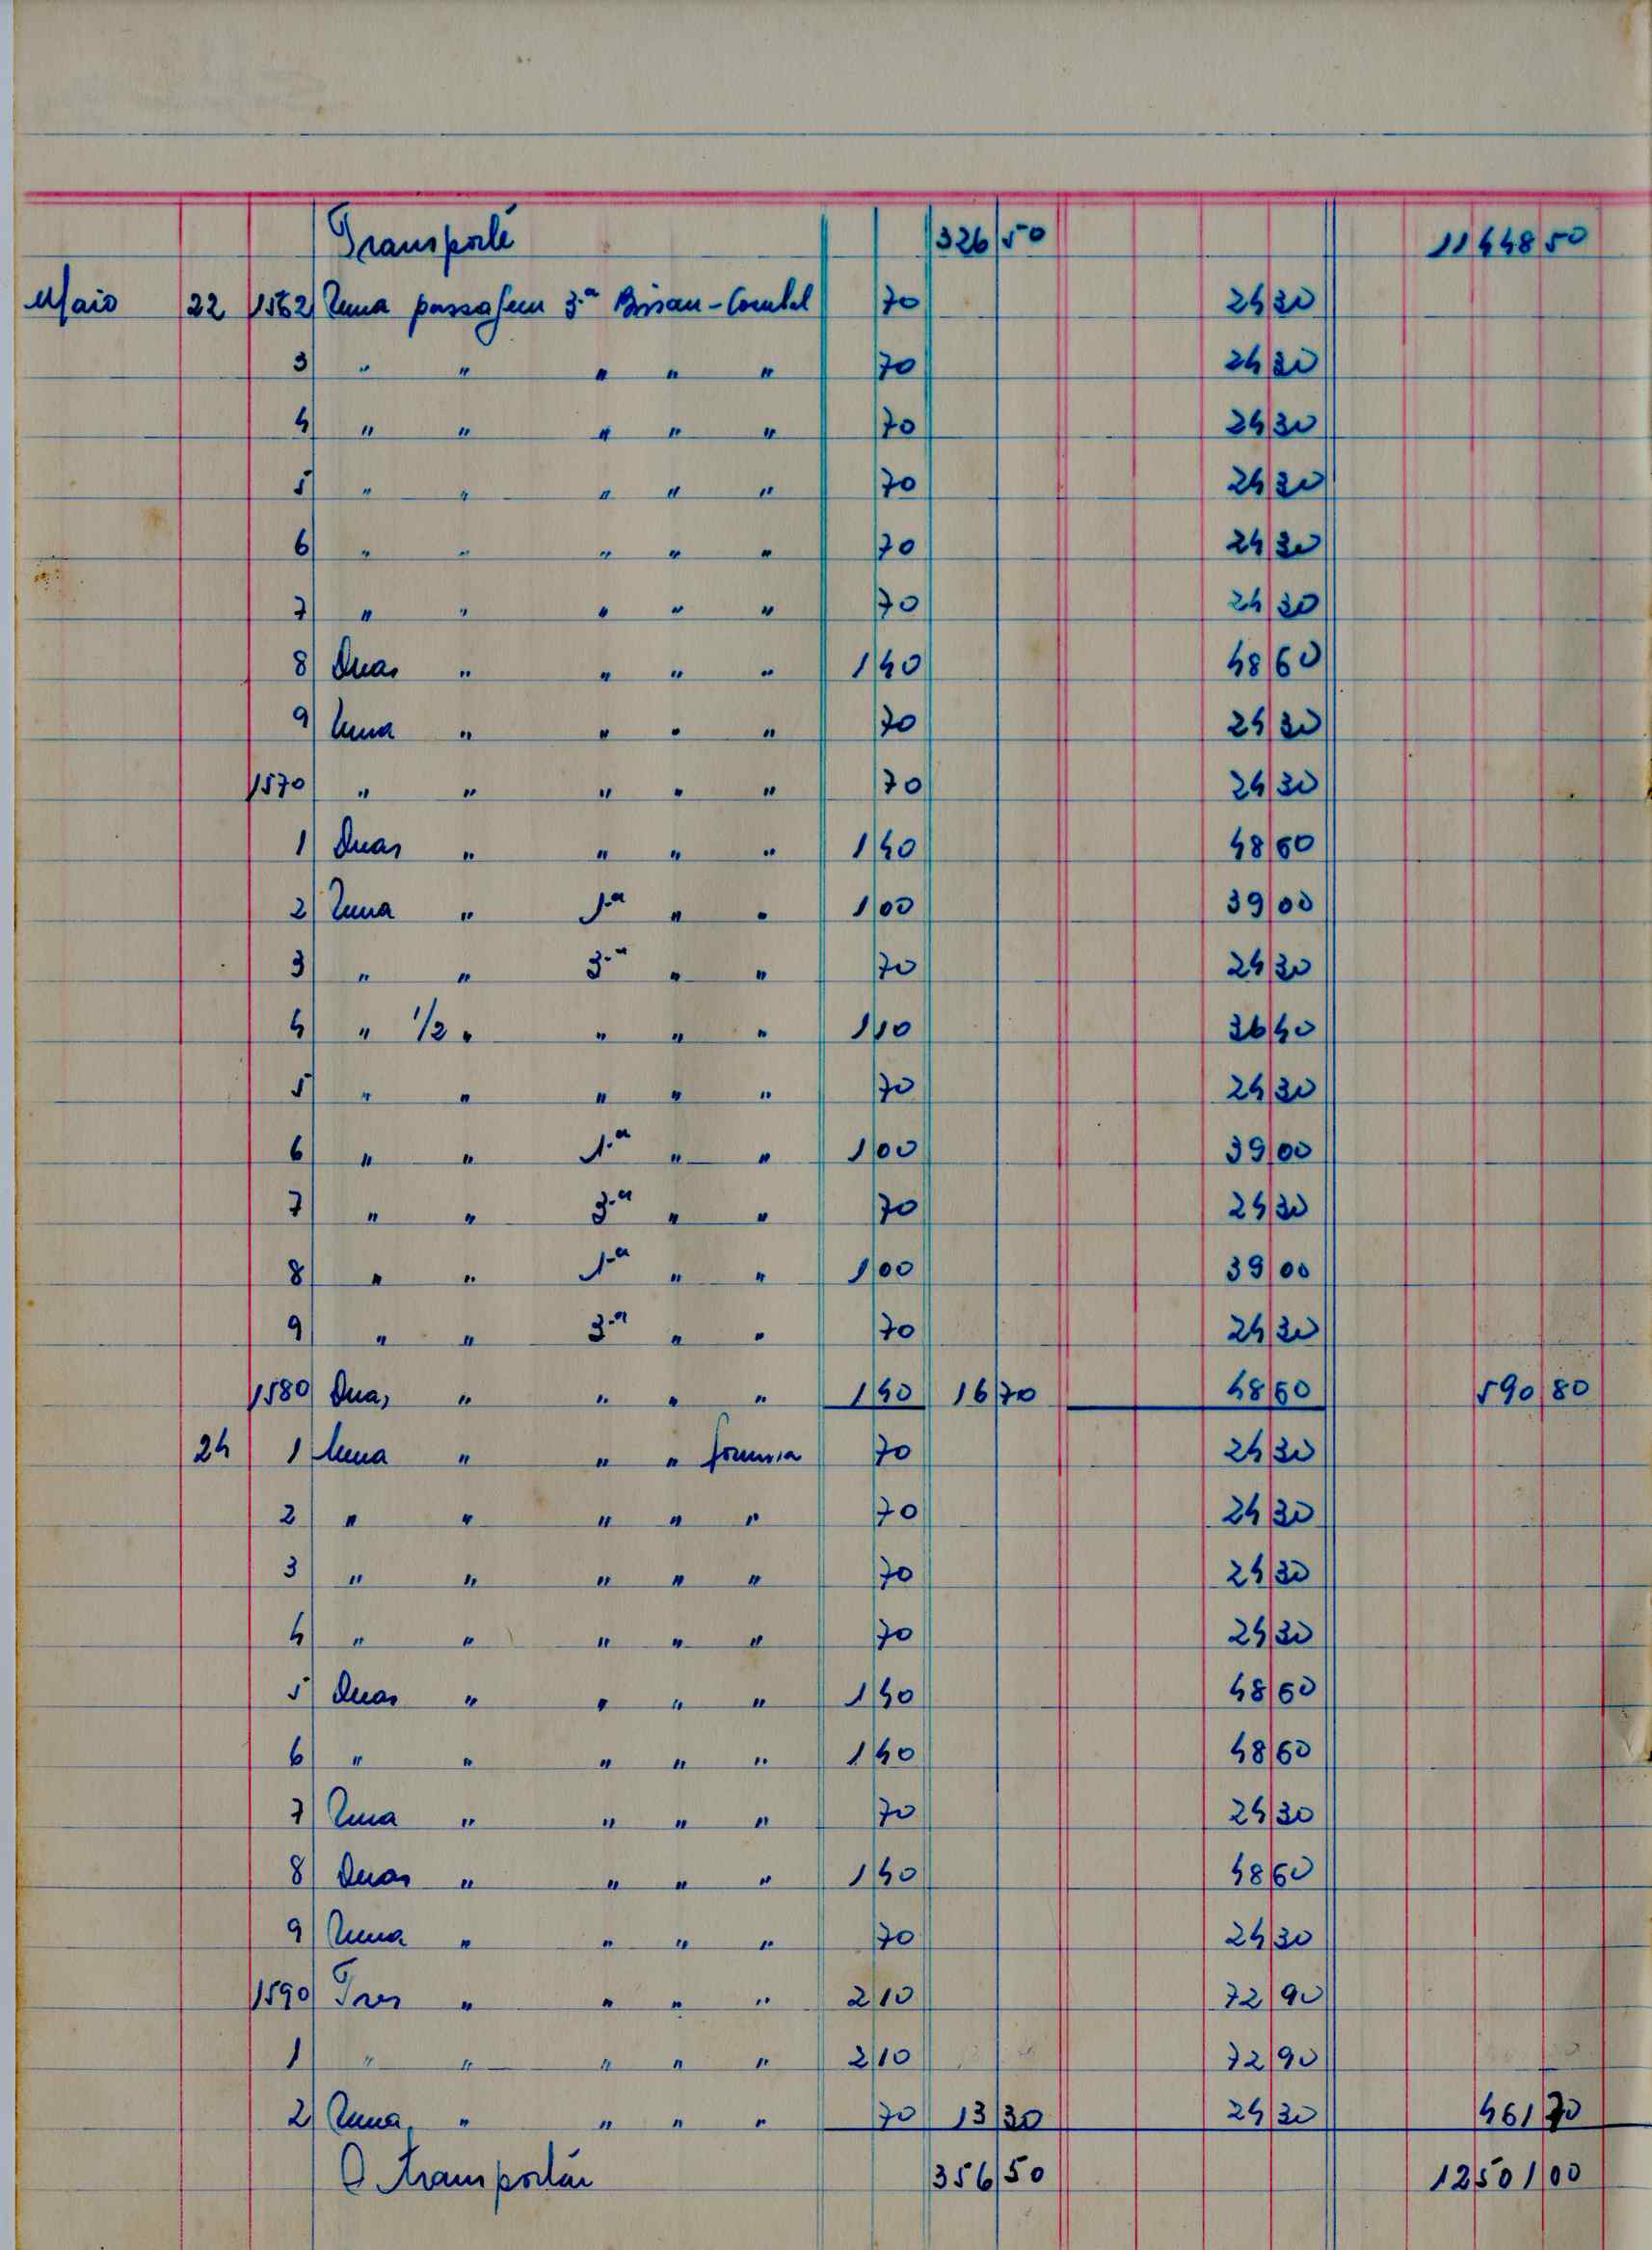 Transporte 326 50 11448 50
Maio 22 1562 Uma passagem 3.ª Bissau-Contubel 70 24 30
3 " " " " " 70 24 30
4 " " " " " 70 24 30
5 " " " " " 70 24 30
6 " " " " " 70 24 30
7 " " " " " 70 24 30
8 Duas " " " " 1 40 48 60
9 Uma " " " " 70 24 30
1570 " " " " " 70 24 30
1 Duas " " " " 1 40 48 60
2 Uma " 1.ª " " 1 00 39 00
3 " " 3.ª " " 70 24 30
4 " 1/2 " " " " 1 10 36 40
5 " " " " " 70 24 30
6 " " 1.ª " " 1 00 39 00
7 " " 3.ª " " 70 24 30
8 " " 1.ª " " 1 00 39 00
9 " " 3.ª " " 70 24 30
1580 Duas " " " " 1 40 16 70 48 60 590 80
24 1 Uma " " " 70 24 30
2 " " " " " 70 24 30
3 " " " " " 70 24 30
4 " " " " " 70 24 30
5 Duas " " " " 1 40 48 60
6 " " " " " 1 40 48 60
7 Uma " " " " 70 24 30
8 Duas " " " " 1 40 48 60
9 Uma " " " " 70 24 30
1590 Tres " " " " 2 10 72 90
1 " " " " " 2 10 72 90
2 Uma " " " " 70 13 30 24 30 461 70
A transportar 356 50 12501 00